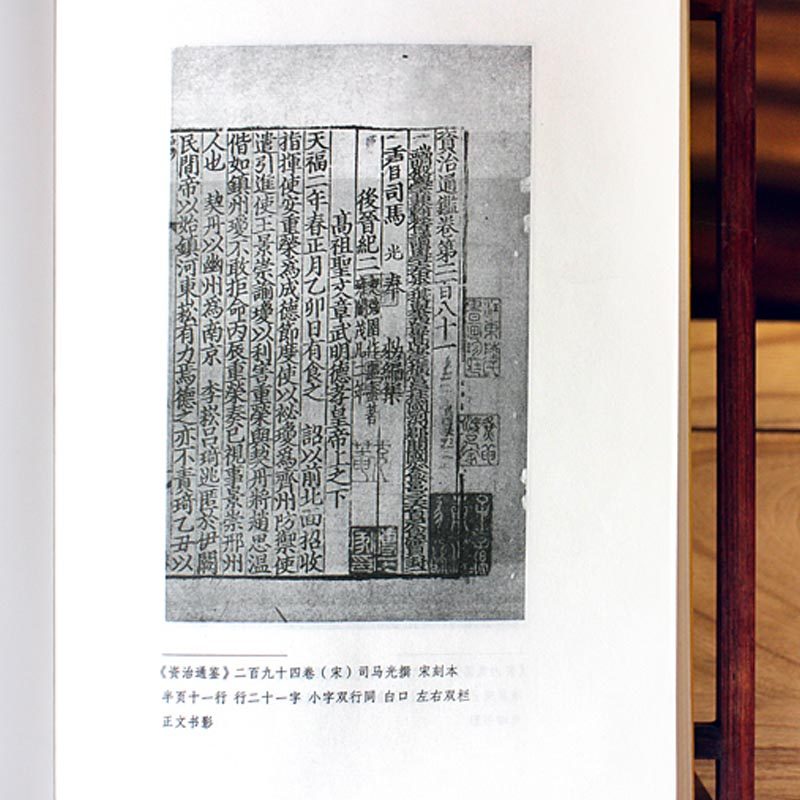 資治通鑑卷第二百八十一
司馬 光 奉 敕編集
後晉紀二
高祖聖文章武明德孝皇帝上之下
天福二年春正月乙卯日有食之 詔以前北面招收
指揮使安重榮為成德節度使以祕瓊為齊州防禦使
遣引進使王景崇諭瓊以利害重榮與契丹將趙思溫
偕如鎮州瓊不敢拒命丙辰重榮奏已視事景崇邢州
人也 契丹以幽州為南京 李崧呂琦逃匿於伊闕
民間帝以始鎮河東崧有力焉德之亦不責琦乙丑以
《资治通鉴》二百九十四卷（宋）司马光撰 宋刻本
半页十一行 行二十一字 小字双行同 白口 左右双栏
正文书影